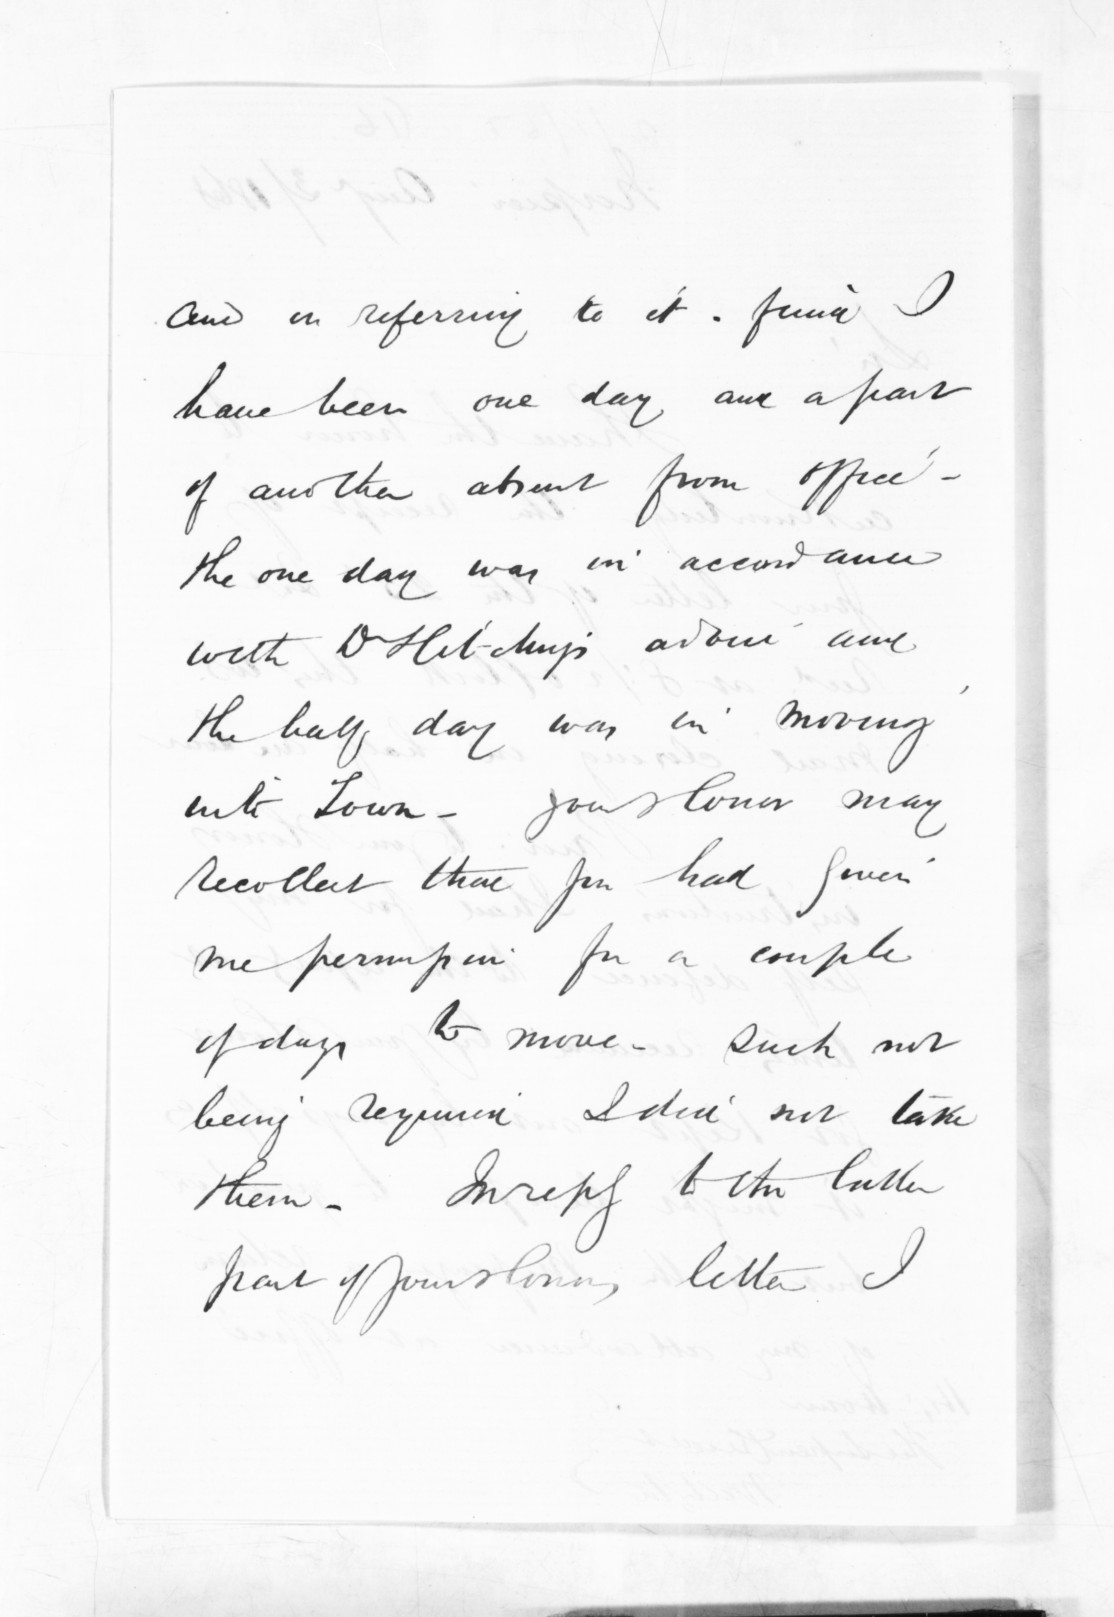 and on referring to it. find I
have been one day and a part
of another absent from office -
the one day was in accordance
with Dr Hitchings advice and
the half day was in moving
into Town - your Honor may
recollect that you had given
me permission for a couple
of days to move - such not
being required I did not take
them - In reply to the latter
part of your Honors letter I